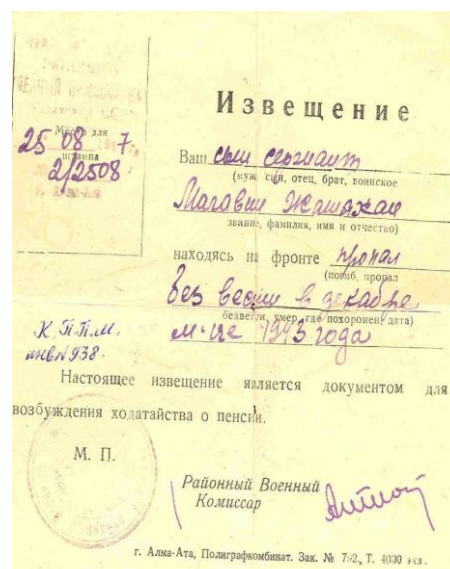 Место для штампа
25 08 7
2/2508
г. Алма-Ата
Извещение
Ваш сын сержант
(муж, сын, отец, брат, воинское
Магавин Жамажан
звание, фамилия, имя и отчество)
находясь на фронте пропал
(погиб, пропал
без вести в декабре
безвести, умер, где похоронен, дата)
м-це 1943 года
инв N 938.
Настоящее извещение является документом для
возбуждения ходатайства о пенсии.
М. П.
Районный Военный
Комиссар
г. Алма-Ата, Полиграфкомбинат. Зак. № 792, Т. 4000 экз.